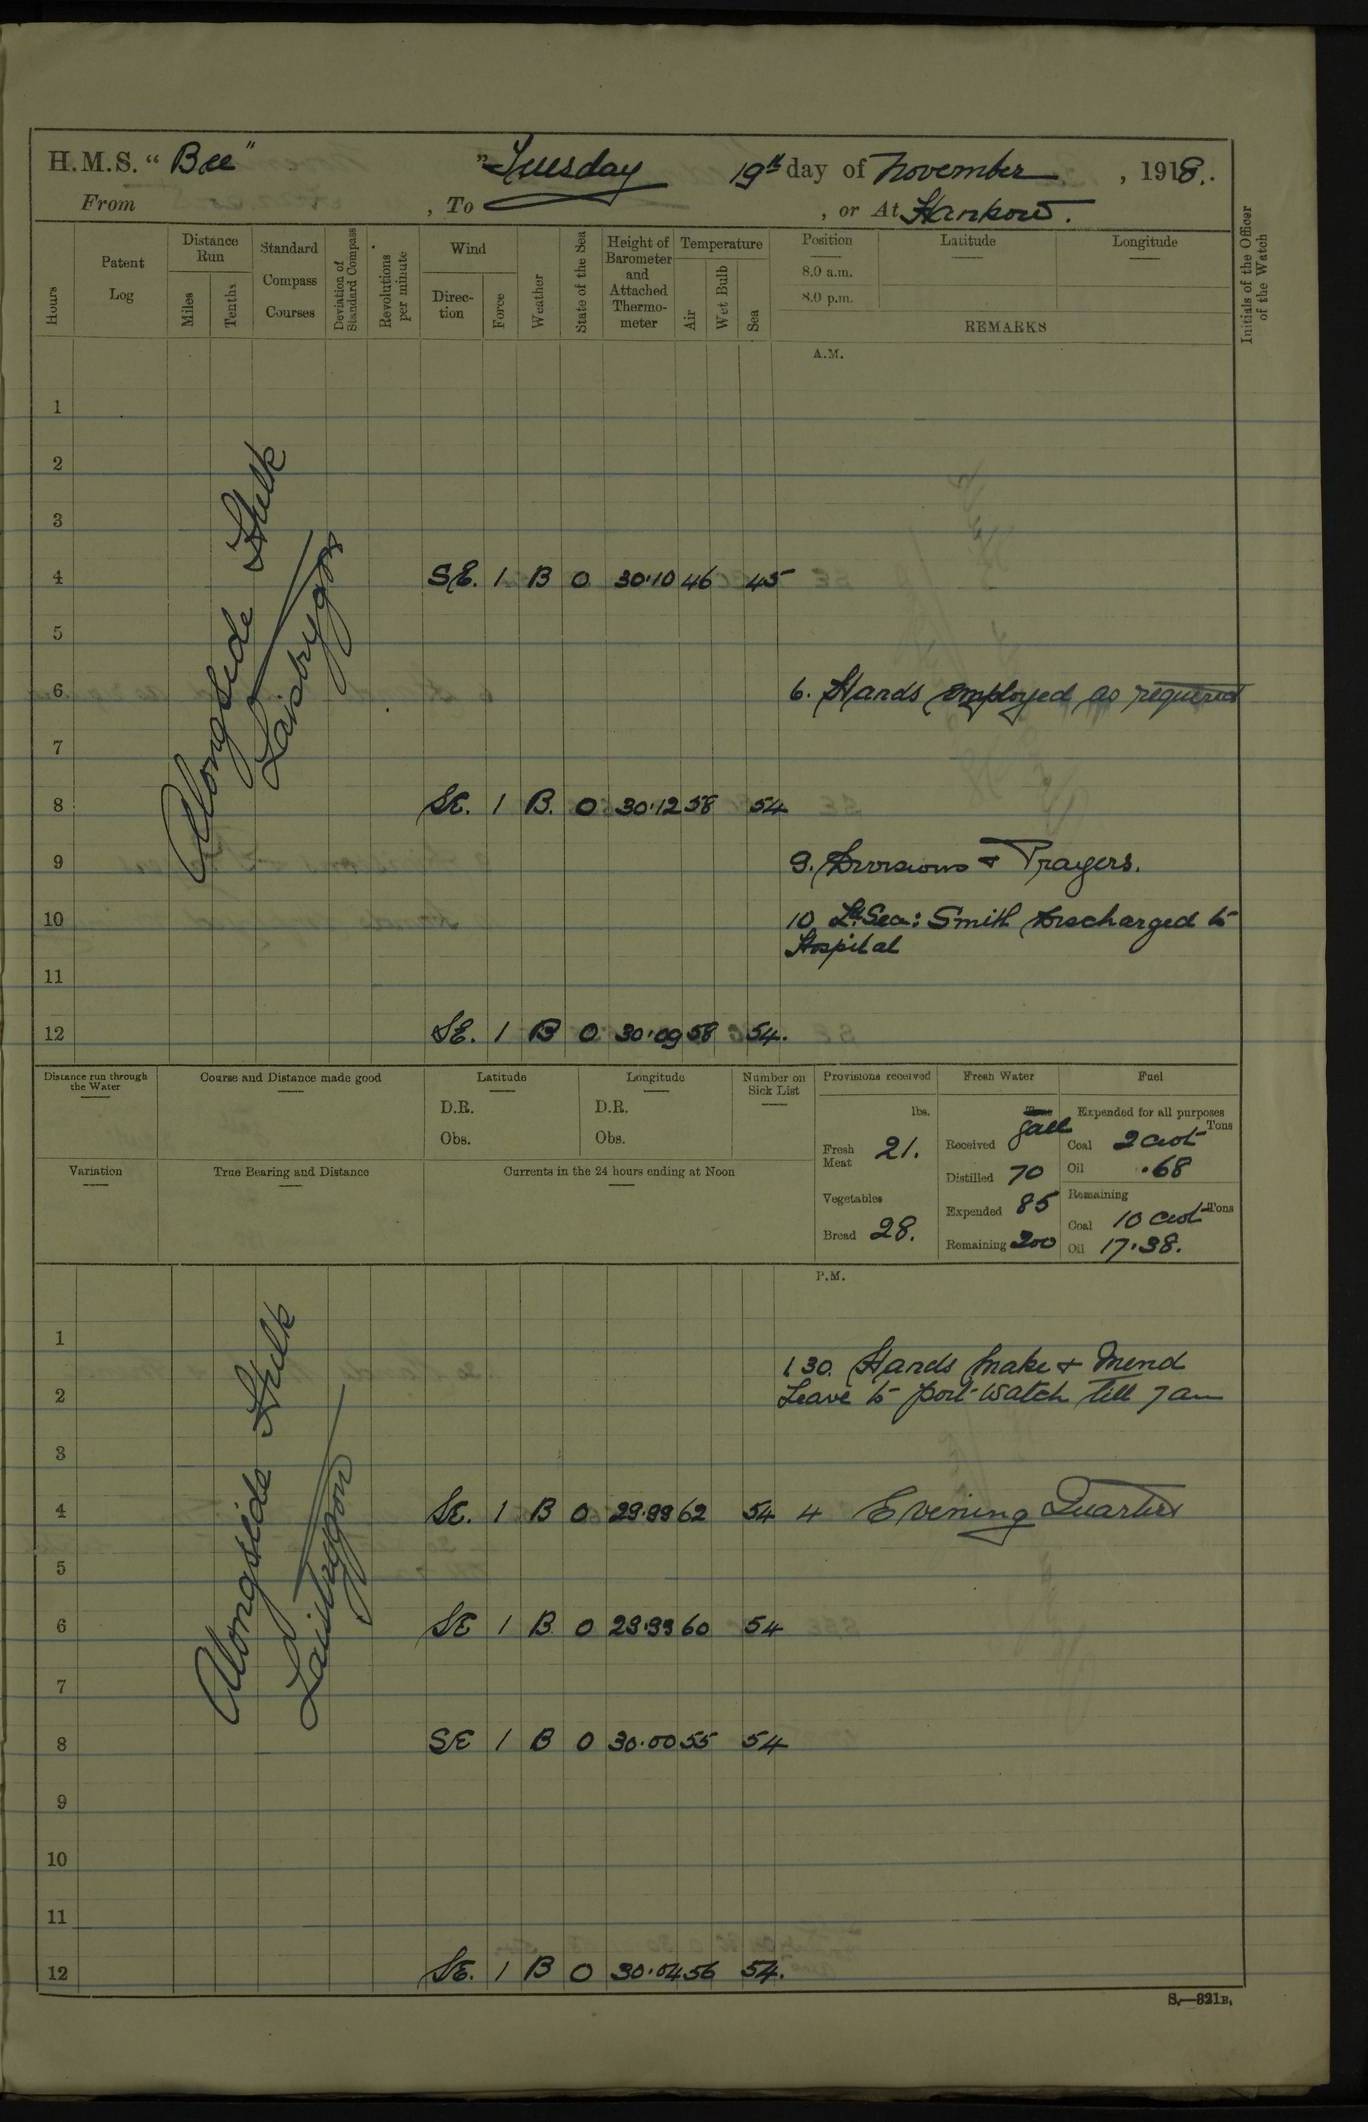 H.M.S. “Bee” Tuesday 19th day of November, 1918.
From , To , or At Hankow.
Hours
Patent Log
Distance Run
Miles
Tenths
Standard Compass Courses
Deviation of Standard Compass
Revolutions per minute
Wind
Direction
Force
Weather
State of the Sea
Height of Barometer and Attached Thermometer
Temperature
Air
Wet Bulb
Sea
Position
8.0 a.m.
8.0 p.m.
Latitude
Longitude
REMARKS
Initials of the Officer of the Watch
A.M.
Alongside Hulk
1
2
3
4 SE. 1 B 0 30.10 46 45
5
6 6. Hands employed as required
7
8 SE. 1 B. 0 30.12 58 54
9 9. Divisions & Prayers.
10 10 Ld. Sea: Smith Discharged to
Hospital
11
12 SE. 1 B 0 30.09 58 54.
Distance run through the Water
Course and Distance made good
Latitude
D.R.
Obs.
Longitude
D.R.
Obs.
Number on Sick List
Variation
True Bearing and Distance
Currents in the 24 hours ending at Noon
Provisions received
lbs.
Fresh Meat 21.
Vegetables
Bread 28.
Fresh Water
Tons
Gall
Received
Distilled 70
Expended 85
Remaining 200
Fuel
Expended for all purposes
Tons
Coal 2 cwt
Oil .68
Remaining
Coal 10 cwt Tons
Oil 17.38.
P.M.
Alongside Hulk
1
1 30. Hands Make & Mend
2 Leave to port watch till 7 am
3
4 SE. 1 B 0 29.99 62 54 4 Evening Quarters
5
6 SE 1 B 0 29.99 60 54
7
8 SE 1 B 0 30.00 55 54
9
10
11
12 SE. 1 B 0 30.04 56 54.
S.—321B.